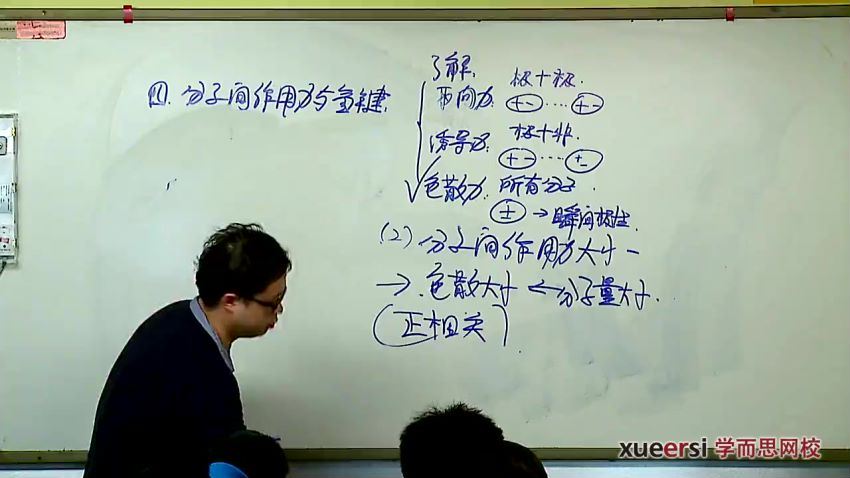 四. 分子间作用力与氢键.
了解.
取向力. 极+极.
+- ···· +-
诱导力: 极+非.
+- ···· +-
√色散力. 所有分子.
± → 瞬间极性.
(2) 分子间作用力大小 -
→ 色散大小 ← 分子量大小.
(正相关)
xueersi 学而思网校